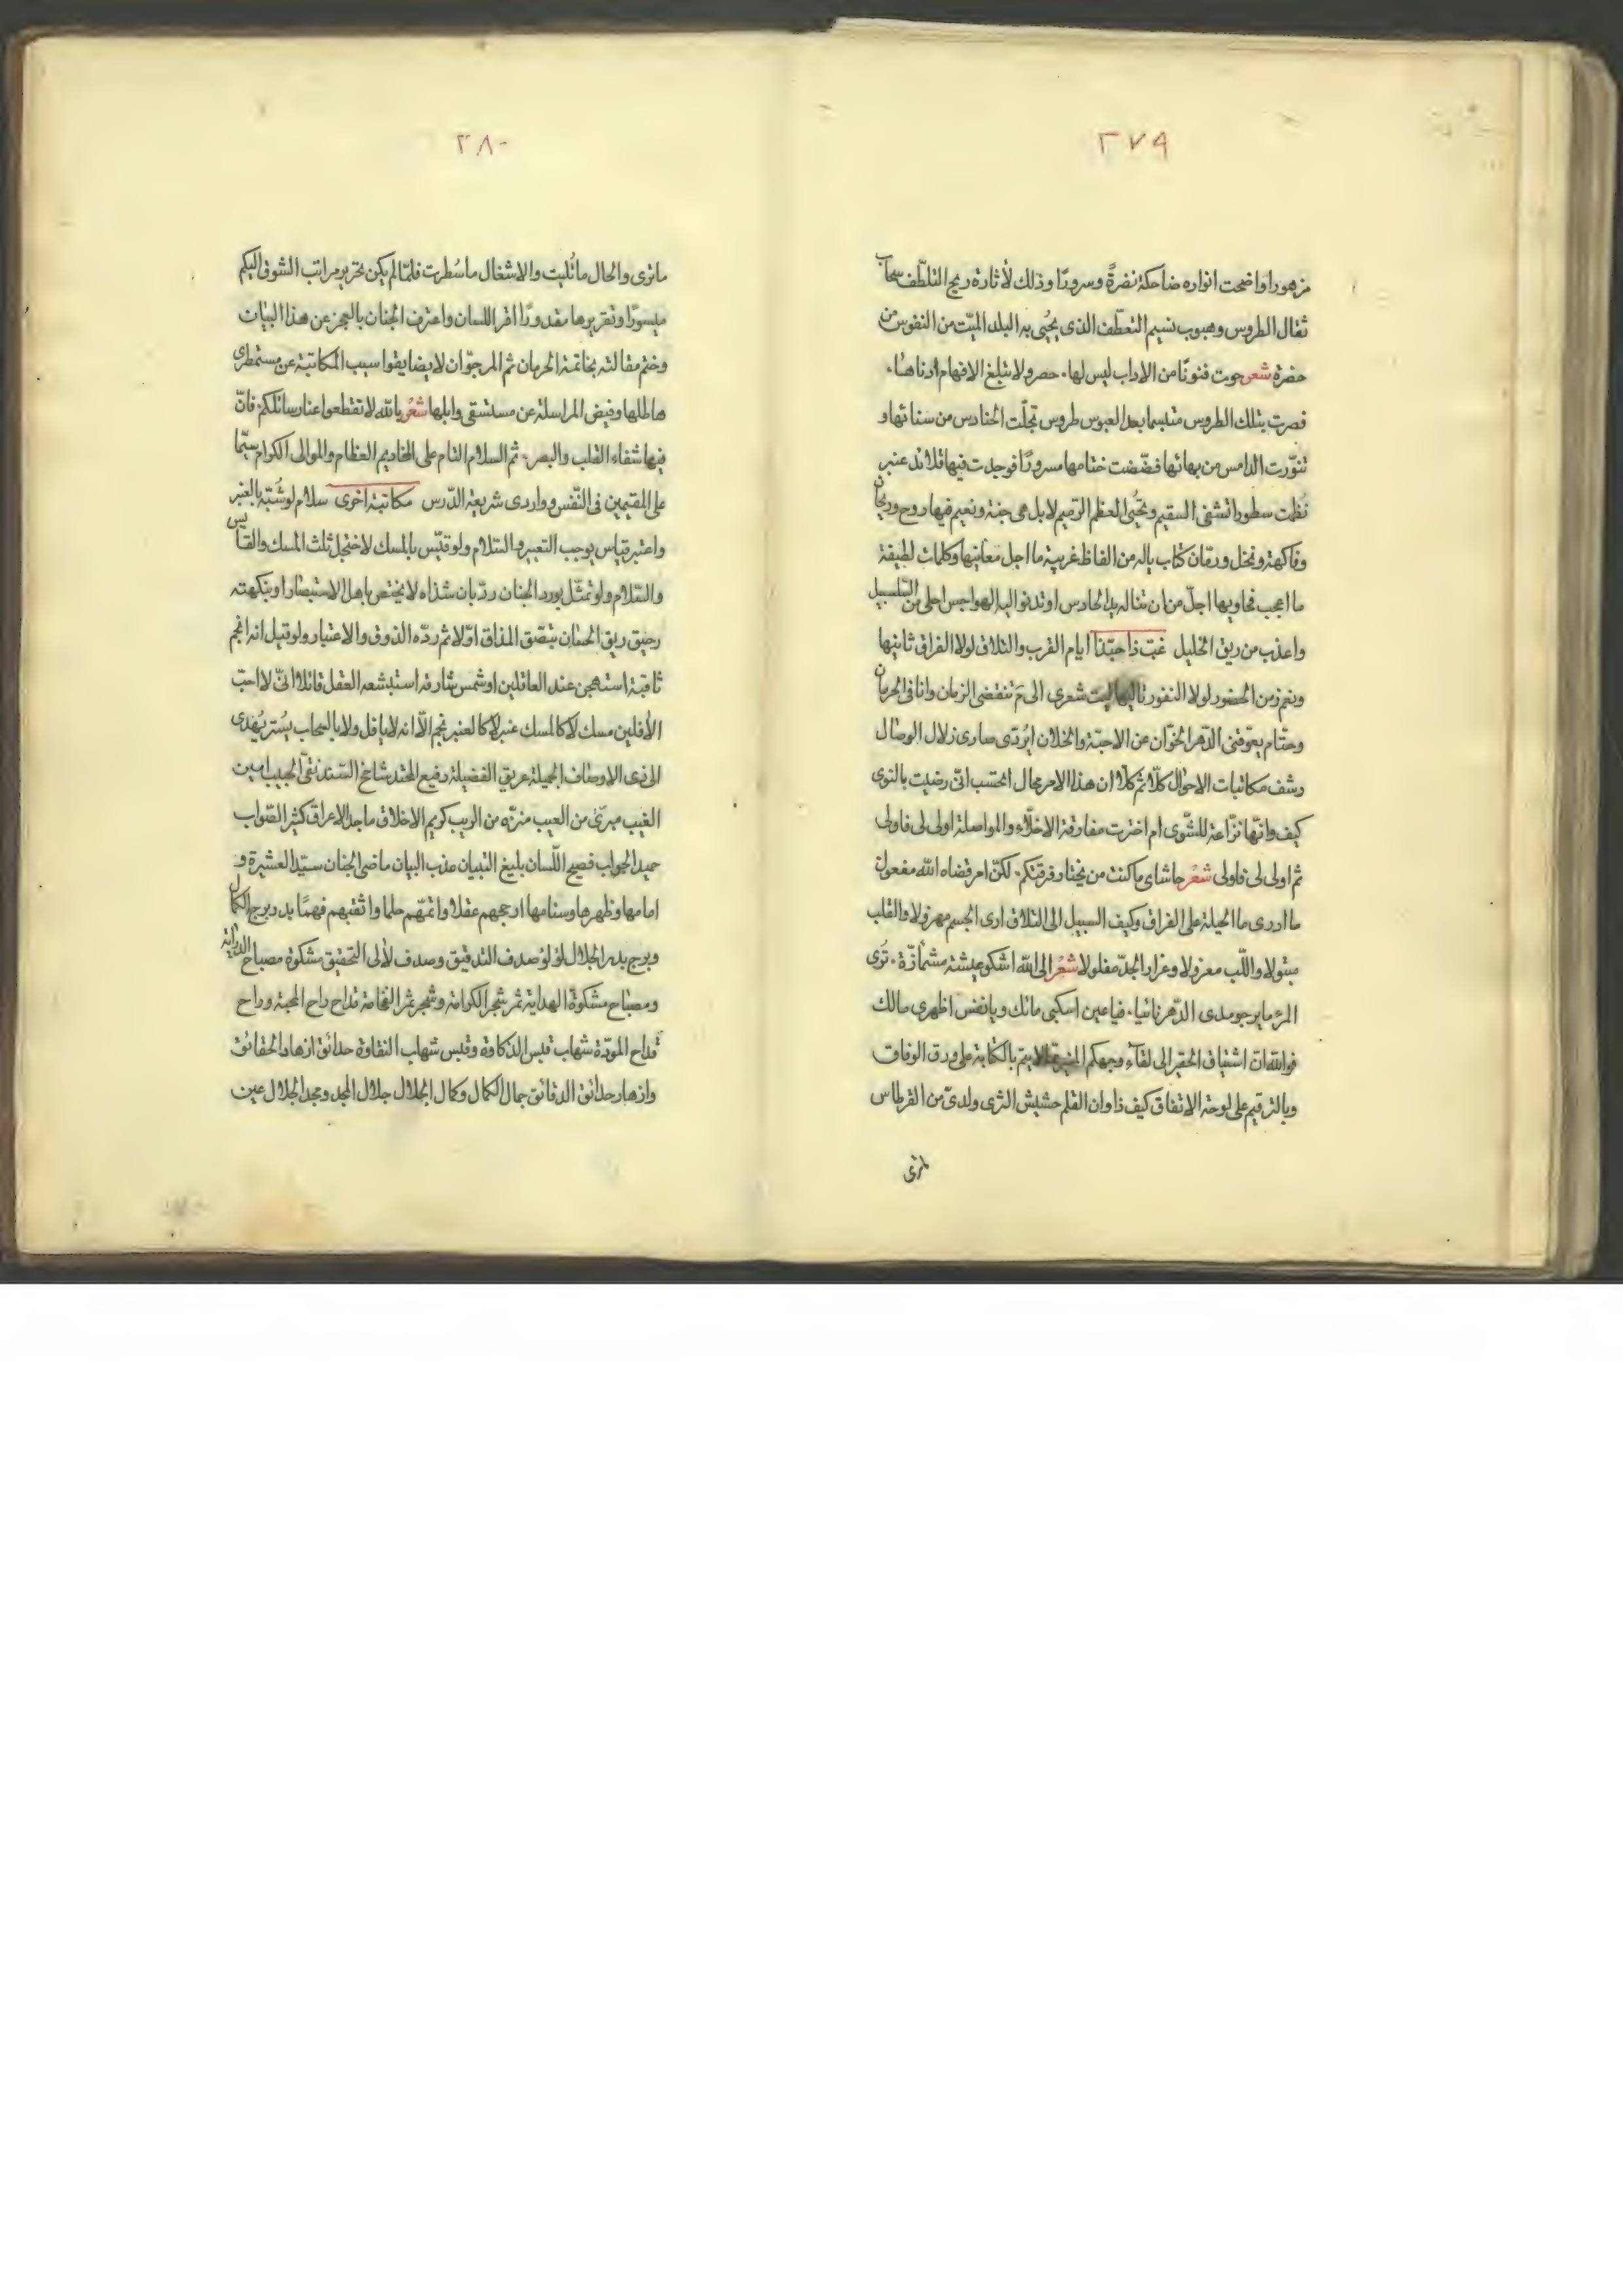 ٢٧٩
مزهورا واضحت انواره ضاحكة نضرةً وسرورًا وذلك لأثارة ريح التلطّف سحاب
ثقال الطروس وهبوب نسيم التعطّف الذى يحُيى به البلد الميّت من النفوس من
حضرة شعر حوت فنونًا من الاداب ليس لها ۰ حصر ولا تبلغ الافهام ادناها ۰
فصرت بتلك الطروس متبسما بعد العبوس طروس تجلّت الحنادس من سنائها و
تنوّرت الدامس من بهائها فضّضت ختامها مسرورًا فوجدت فيها قلائد عنبر
نُظمت سطورا تشفى السقيم وتحُيى العظم الرّميم لا بل هى جنة ونعيم فيها روح وريحان
وفاكهة ونخل ورمّان كتاب ياله من الفاظ غريبة ما اجل معانيها وكلمات لطيفة
ما اعجب فحاويها اجلّ من ان تناله يد الحادس او تدنو اليه الهواجس احلى من السّلسبيل
واعذب من ريق الخليل غبّ ذا حبّذا ايام القرب والتلاق لولا الفراق ثانيها
ونعم زمن الحضور لولا النفور تاليها ليت شعرى الى مَ تنقضى الزمان وانا فى الحرمان
وحتّام يعوقنى الدّهر الخوّان عن الاحبّة والخلان ايُردّى صارى زلال الوصال
رشف مكاتبات الاحوال كلّا ثم كلّا ان هذا الامر محال اتحسب انّى رضيت بالنوى
كيف وانّها نزّاعة للشّوى ام اخترت مفارقة الاخلّاء والمواصلة اولى لى فاولى
ثم اولى لى فاولى شعُر حاشاى ما كنت من يختار فرقتكم ۰ لكنّ امر قضاه الله مفعول
ما ادرى ما الحيلة على الفراق وكيف السبيل الى التلاق ارى الجسم مهزولا والقلب
مبتولا واللّب معزولا وغرار الجدّ مفلولا شعُر الى الله اشكو عيشة مشمأزّة ۰ تُرى
المرء ما يرجو مدى الدّهر نائيا ۰ فيا عين اسكبى مائك ويا نفس اظهرى مالك
فوالله انّ اشتياق الحقير الى لقآء وجهكم لا يتم بالكتابة على ورق الوفاق
وبالترقيم على لوحة الاتفاق كيف ذا وان القلم حشيش الثرى ولدىّ من القرطاس
٢٨٠
ما ترى والحال ما تُليت والاشغال ما سُطرت فلمّا لم يكن تحرير مراتب الشوق اليكم
ميسورًا وتقريرها مقدورًا اقر اللسان واعترف الجنان بالعجز عن هذا البيان
وختم مقالته بخاتمة الحرمان ثم المرجوّ ان لا يضايقوا سيب المكاتبة عن مستمطرى
هاطلها وفيض المراسلة عن مستسقى وابلها شعُر يا لله لا تقطعوا عنا رسائلكم ۰ فانّ
فيها شفاء القلب والبصر ۰ ثم السلام التام على المخاديم العظام والموالى الكرام سيّما
على المقيمين فى النّفس وواردى شريعة الدّرس مكاتبة اخرى سلام لو شُبّه بالعنبر
واعتبر قياس يوجب التعبير والسّلام ولو قيّس بالمسك لاختجل ثلث المسك والقياس
والسّلام ولو تمثّل بورد الجنان ردّ بان شذاه لا يختص باهل الاستبصار او بنكهته
رحيق ريق الحسان يبصق المذاق اوّلا ثم ردّه الذوق والاعتبار ولو قيل انه انجم
ثاقبة استهجن عند العاقلين او شمس شارقة استبشعه العقل قائلا انّى لا احبّ
الآفلين مسك لا كالمسك عنبر لا كالعنبر نجم الّا انه لا يافل ولا بالسحاب يسُتر يُهدى
الى ذى الاوصاف الجميلة عريق الفضيلة رفيع المحتد شاخ السّند نقىّ الجيب امين
الغيب مبرّئ من العيب منزّه من الريب كريم الاخلاق ماجد الاعراق كثير الصّواب
حميد الجواب فصيح اللّسان بليغ التبيان عذب البيان ماضى الجنان سيّد العشيرة و
امامها وظهرها وسنامها ارجحهم عقلا واتمّهم حلما واثقبهم فهمًا بدر برج الكمال
وبرج بدر الجلال لؤلؤ صدف التدقيق وصدف لآلى التحقيق مشكوة مصباح الدراية
ومصباح مشكوة الهداية ثمر شجر الكرامة وشجر ثمر الفخامة قداح راح المحبة وراح
قداح المودّة شهاب قبس الذكاوة وقبس شهاب النقاوة حدائق ازهار الحقائق
وازهار حدائق الدقائق جمال الكمال وكمال الجلال جلال المجد ومجد الجلال عين